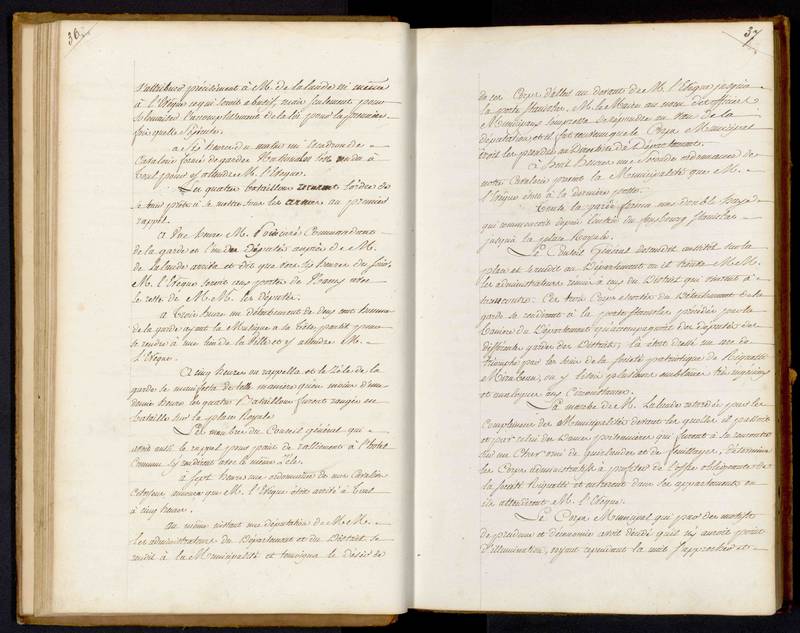 36
n'attribuer précisément à M. de la lande ni même
à l'Evêque ce qui seroit abusif, mais seulement pour
solemniser l'accomplissement de la loi pour la première
fois qu'elle s'éxécute.
a six heures du matin un Escadron de
Cavalerie formé de gardes Nationales s'est rendu à
toul pour y attendre M. l'Evêque.
Les quatre bataillons reçurent l'ordre de
se tenir prêts à se mettre sous les armes au premier
rappel.
a une heure M. Poincaré Commandant
de la garde et l'un des Députés auprès de M.
de la lande arrive et dit que vers six heures du soir
M. l'Evêque seroit aux portes de Nancy avec
le reste de M.M. les députés.
a trois heures un détachement de deux cent hommes
de la garde ayant la Musique à sa tête partit pour
se rendre à une lieue de la Ville et y attendre M.
l'Evêque.
A cinq heures on rappella et le Zèle de la
garde se manifesta de telle manière qu'en moins d'une
demie heure les quatre Bataillons furent rangés en
bataille sur la place Royale
Les membres du Conseil général qui
avoit aussi le rappel pour point de ralliement à l'hôtel
Commun s'y rendirent avec le même Zèle.
à sept heures une ordonnance de nos Cavaliers
Citoyens annonça que M. l'Evêque étoit arrivé à Toul
à cinq heures.
au même instant une députation de M.M.
les administrateurs du Département et du District se
rendit à la Municipalité et témoigna le désir de
37
de ces Corps d'aller au devant de M. l'Evêque jusqu'à
la porte Stanislas. M. le Maire au nom des officiers
Municipaux s'empressa de répondre au vœu de la
députation, et il fut convenu que le Corps Municipal
iroit les prendre au Directoire du Département.
à huit heures une seconde ordonnance de
notre Cavalerie prévint la Municipalité que M.
l'Evêque étoit à la dernière poste.
toute la garde forma une double haye
qui commençoit depuis l'entrée du fauxbourg Stanislas
jusqu'à la place Royale.
Le Conseil Général descendit aussitôt sur la
place et se rendit au Département où il trouva M.M.
les administrateurs réunis à ceux du District qui vinrent à sa
rencontre. Ces trois Corps escortés du Détachement de la
garde se rendirent à la porte Stanislas précédés par la
banière du Département qu'accompagnoit des députés des
différentes gardes des Districts; là étoit dressé un arc de
triomphe par les soins de la société patriotique de Riquetti
Mirabeau, on y lisoit plusieurs emblêmes très ingénieux
et analogues aux Circonstances.
La marche de M. Lalande retardée par les
Complimens des Municipalités devant lesquelles il passoit
et par celui des Dames poissonnières qui furent à sa rencontre
sur un Char orné de Guirlandes et de feuillages. Détermina
les Corps administratifs à profiter de l'offre obligeante de
la société Riquetti et entrèrent dans les appartements où
ils attendirent M. l'Evêque.
Le Corps Municipal qui par des motifs
de prudence et d'économie avoit décidé qu'il n'y auroit point
d'illumination, voyant cependant la nuit s'approcher et